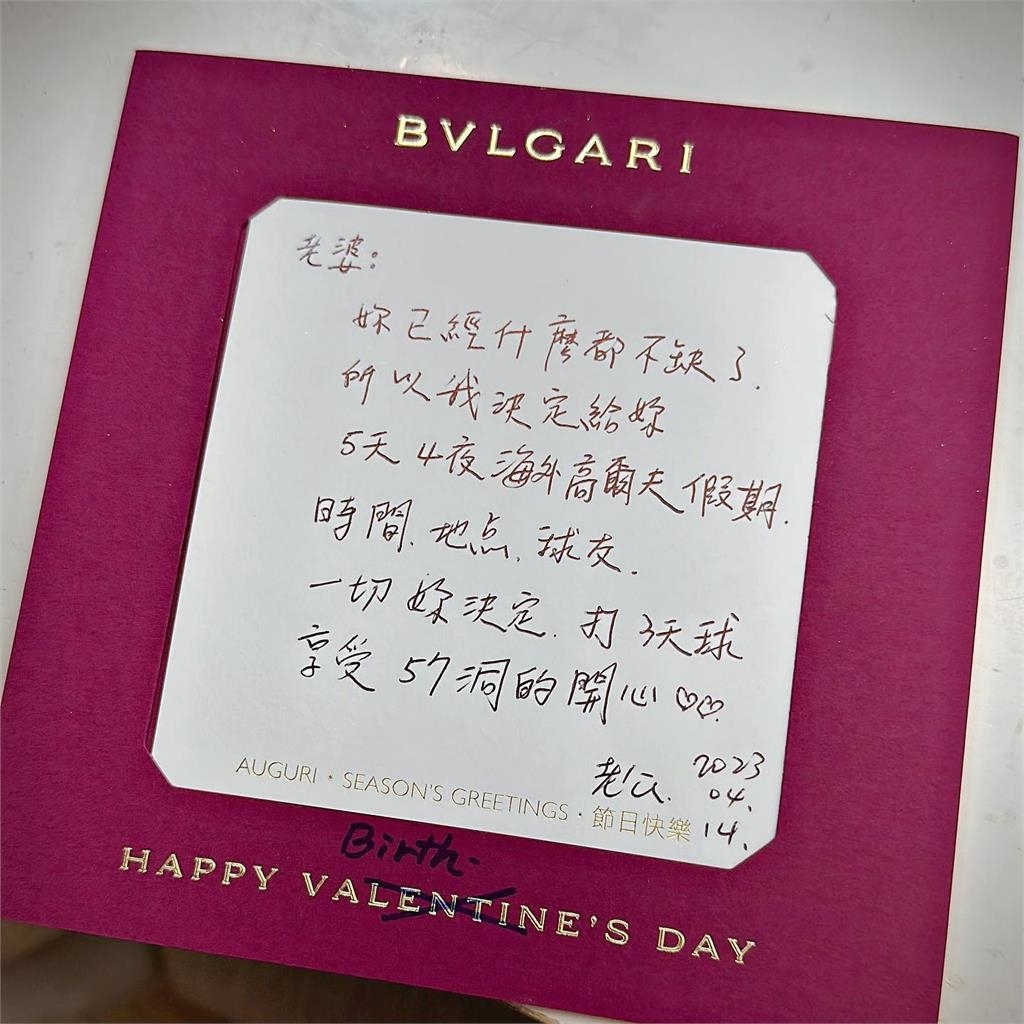 BVLGARI
老婆:
妳已經什麼都不缺了.
所以我決定給妳
5天4夜海外高爾夫假期.
時間.地点.球友.
一切妳決定.打3天球
享受57洞的開心♡♡.
老公. 2023
04.
14.
AUGURI · SEASON'S GREETINGS · 節日快樂
Birth-
HAPPY VALENTINE'S DAY